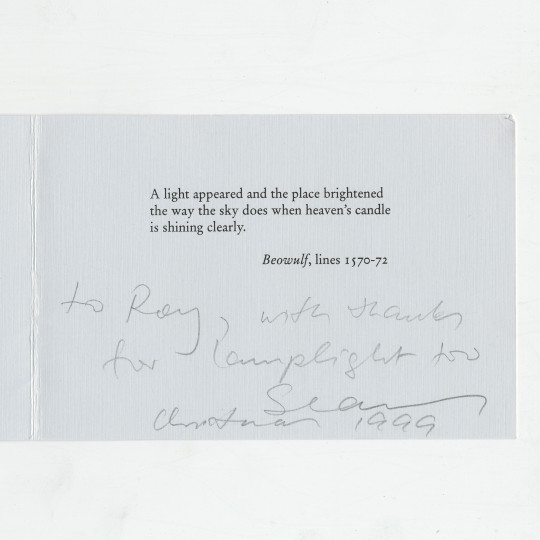 A light appeared and the place brightened
the way the sky does when heaven's candle
is shining clearly.
Beowulf, lines 1570-72
to Roy, with thanks
for lamplight too
Seamus
Christmas 1999